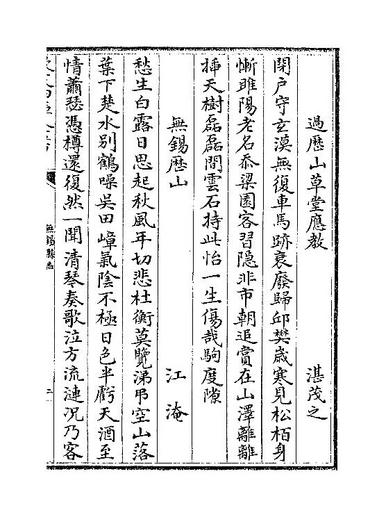 過歴山草堂應教　湛茂之
閉户守玄漠無復車馬跡衰廢歸邱樊歳寒見松栢身
慚睢陽老名忝梁園客習隐非市朝追賞在山澤離離
挿天樹磊磊間雲石持此怡一生傷哉駒度隙
無錫歴山　江淹
愁生白露日思起秋風年切悲杜衡莫覽涕弔空山落
葉下楚水别鶴噪吳田嶂氣陰不極日色半虧天酒至
情蕭瑟憑樽還復然一聞清琴奏歌泣方流漣况乃客
無錫縣志